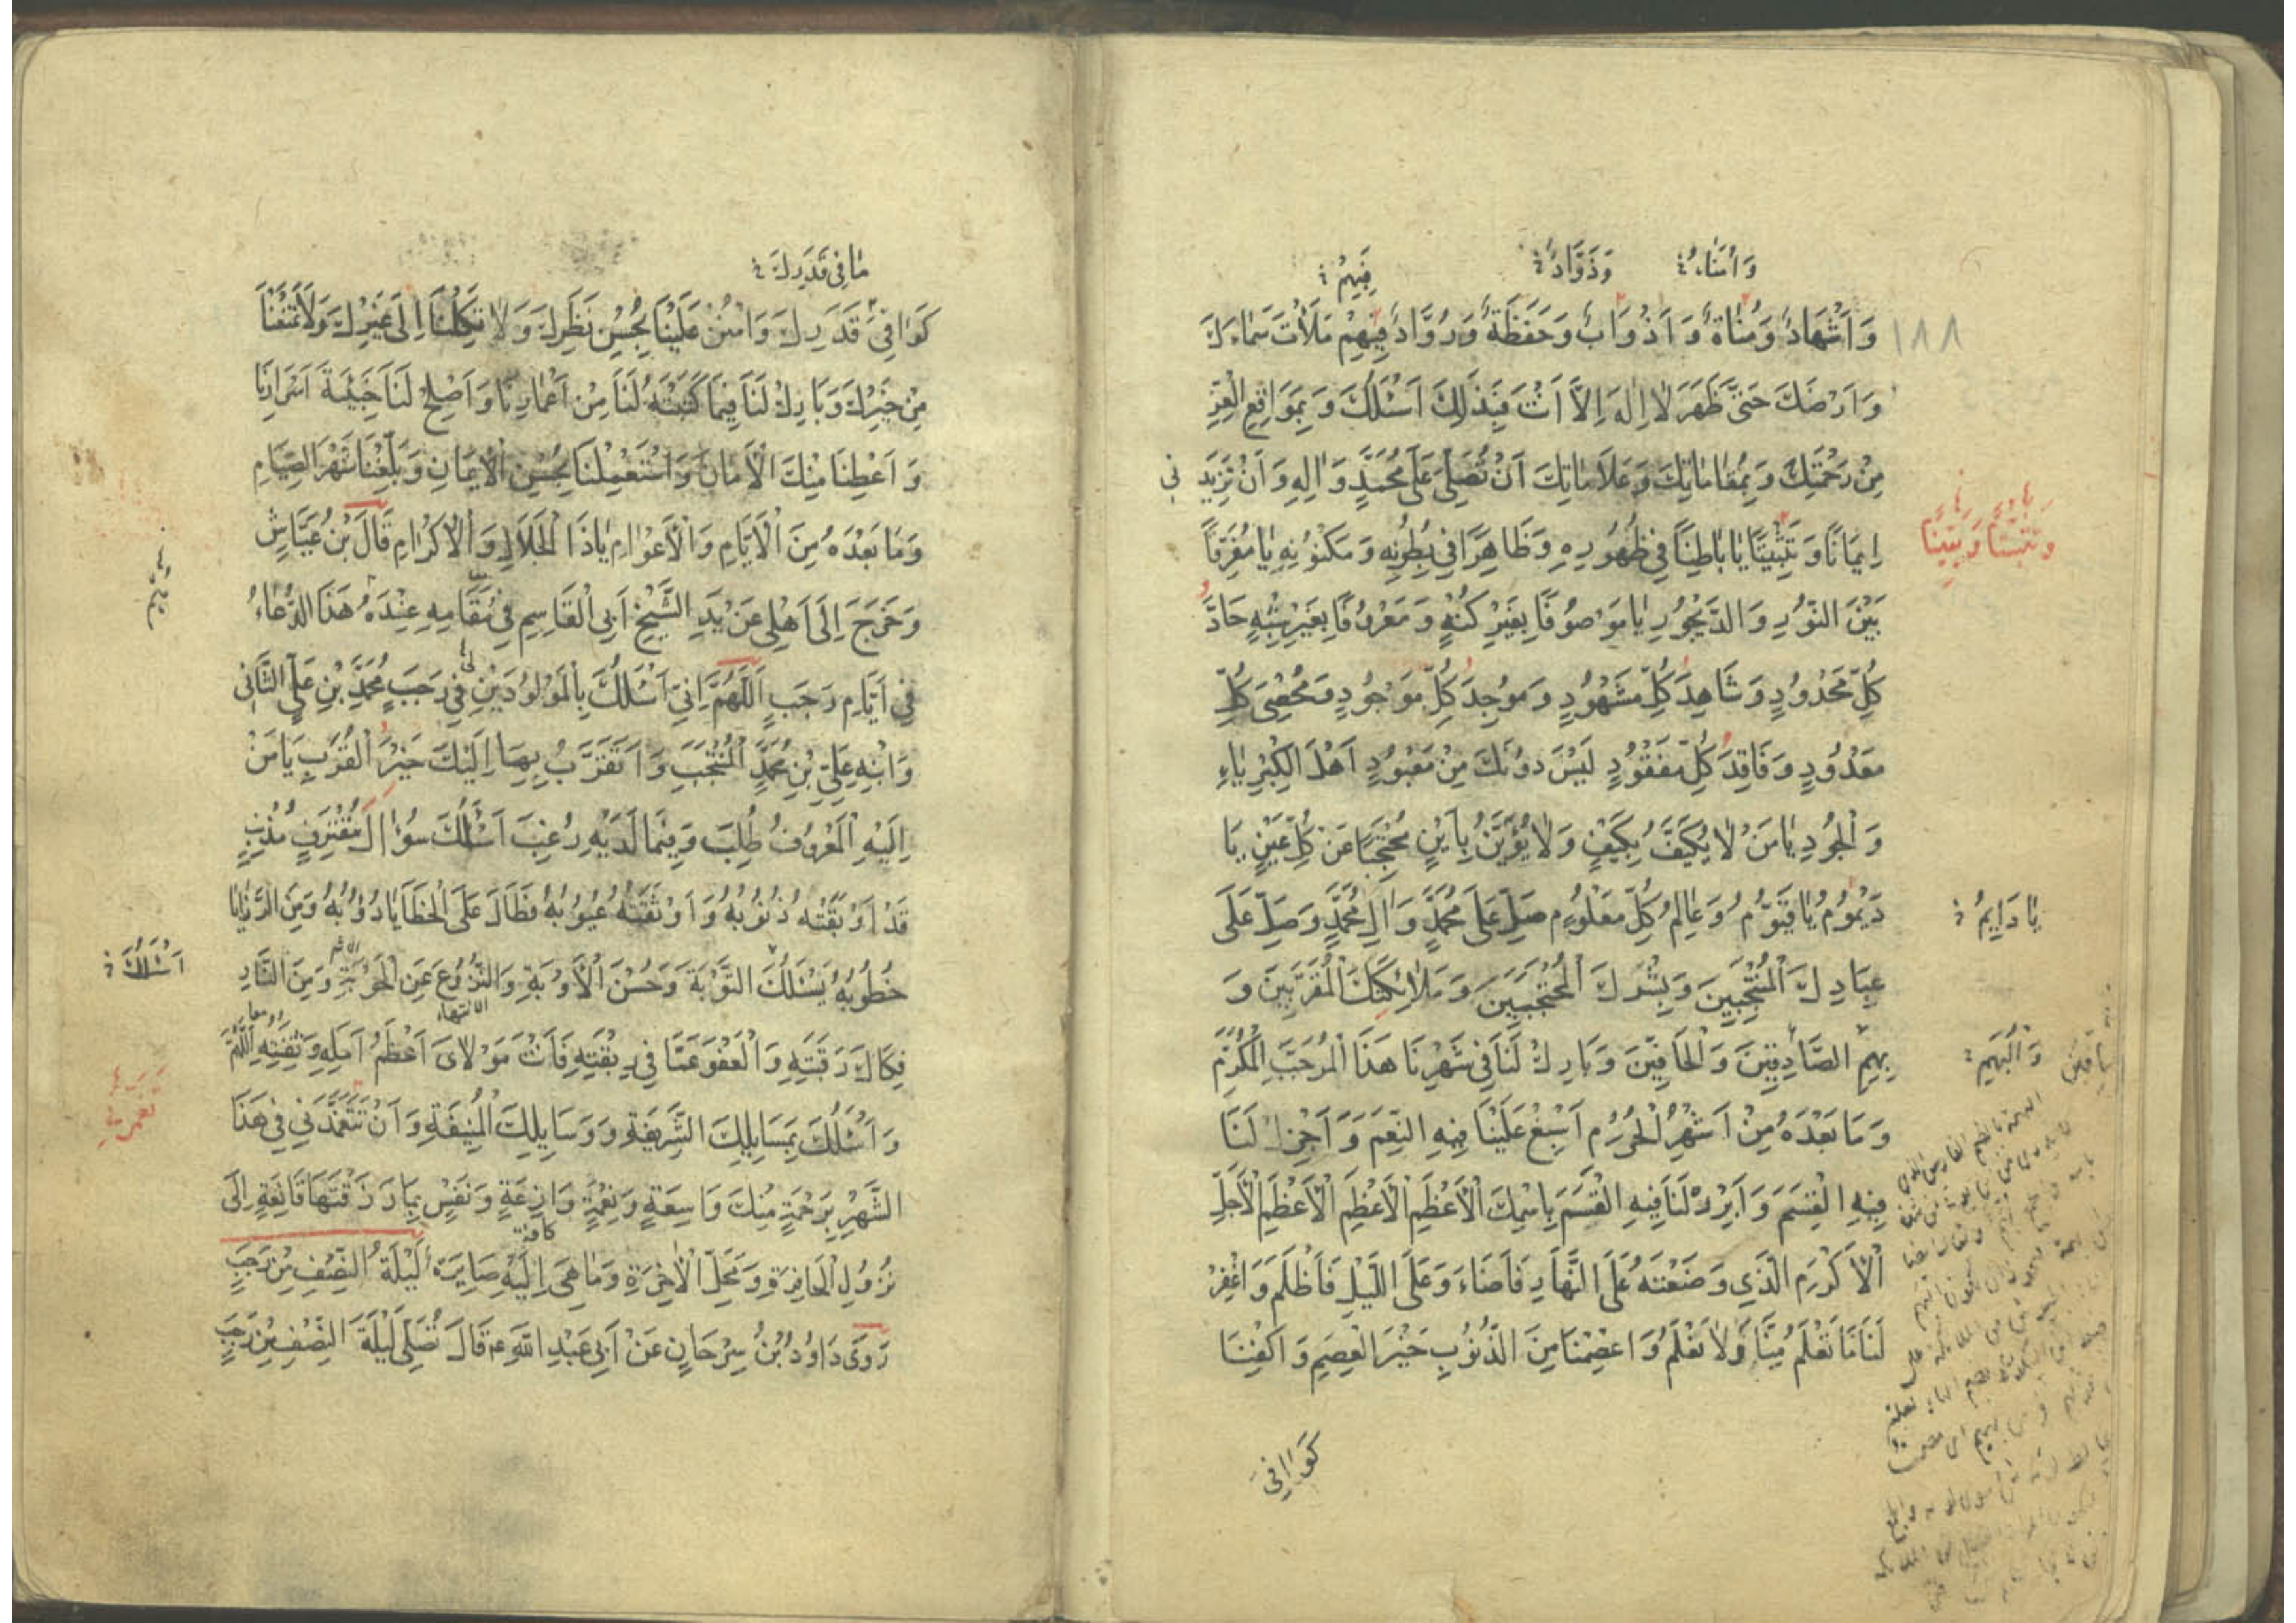 وَاُمَنَاءُ وَذَوَّادٌ فَبِهِمْ
١٨٨
وَاَشْهَادٌ وَمُنَاةٌ وَاَذْوَابٌ وَحَفَظَةٌ وَرُوَّادٌ فَبِهِمْ مَلَأْتَ سَمَاءَكَ
وَاَرْضَكَ حَتّٰى ظَهَرَ لَا اِلٰهَ اِلَّا اَنْتَ فَبِذٰلِكَ اَسْئَلُكَ وَبِمَوَاقِعِ الْعِزِّ
مِنْ رَحْمَتِكَ وَبِمَقَامَاتِكَ وَعَلَامَاتِكَ اَنْ تُصَلِّىَ عَلٰى مُحَمَّدٍ وَاٰلِهِ وَاَنْ تَزِيدَ نِى
اِيمَانًا وَتَثْبِيتًا يَا بَاطِنًا فِى ظُهُورِهِ وَظَاهِرًا فِى بُطُونِهِ وَمَكْنُونِهِ يَا مُفَرِّقًا
بَيْنَ النُّورِ وَالدَّيْجُورِ يَا مَوْصُوفًا بِغَيْرِ كُنْهٍ وَمَعْرُوفًا بِغَيْرِ شِبْهٍ حَادَّ
كُلِّ مَحْدُودٍ وَشَاهِدَ كُلِّ مَشْهُودٍ وَمُوجِدَ كُلِّ مَوْجُودٍ وَمُحْصِىَ كُلِّ
مَعْدُودٍ وَفَاقِدَ كُلِّ مَفْقُودٍ لَيْسَ دُونَكَ مِنْ مَعْبُودٍ اَهْلَ الْكِبْرِيَاءِ
وَالْجُودِ يَا مَنْ لَا يُكَيَّفُ بِكَيْفٍ وَلَا يُؤَيَّنُ بِاَيْنٍ مُحْتَجِبًا عَنْ كُلِّ عَيْنٍ يَا
دَيْمُومُ يَا قَيُّومُ وَعَالِمُ كُلِّ مَعْلُومٍ صَلِّ عَلٰى مُحَمَّدٍ وَاٰلِ مُحَمَّدٍ وَصَلِّ عَلٰى
يَا دَايِمُ
عِبَادِكَ الْمُنْتَجَبِينَ وَبَشَرِكَ الْمُحْتَجَبِينَ وَمَلَائِكَتِكَ الْمُقَرَّبِينَ وَ
بِهِمِ الصَّادِقِينَ وَالْحَافِّينَ وَبَارِكْ لَنَا فِى شَهْرِنَا هٰذَا الْمُرَجَّبِ الْمُكَرَّمِ
وَالْبُهَمِ
وَمَا بَعْدَهُ مِنْ اَشْهُرِ الْحُرُمِ اَسْبِغْ عَلَيْنَا فِيهِ النِّعَمَ وَاَجْزِلْ لَنَا
فِيهِ الْقِسَمَ وَاَبْرِرْ لَنَا فِيهِ الْقَسَمَ بِاسْمِكَ الْاَعْظَمِ الْاَعْظَمِ الْاَعْظَمِ الْاَجَلِّ
الْاَكْرَمِ الَّذِى وَضَعْتَهُ عَلَى النَّهَارِ فَاَضَاءَ وَعَلَى اللَّيْلِ فَاَظْلَمَ وَاغْفِرْ
لَنَا مَا تَعْلَمُ مِنَّا وَلَا نَعْلَمُ وَاعْصِمْنَا مِنَ الذُّنُوبِ خَيْرَ الْعِصَمِ وَاكْفِنَا
كَوَافِىَ
مَا فِى قَدَرِكَ
كَوَافِىَ قَدَرِكَ وَامْنُنْ عَلَيْنَا بِحُسْنِ نَظَرِكَ وَلَا تَكِلْنَا اِلٰى غَيْرِكَ وَلَا تَمْنَعْنَا
مِنْ خَيْرِكَ وَبَارِكْ لَنَا فِيمَا كَتَبْتَهُ لَنَا مِنْ اَعْمَارِنَا وَاَصْلِحْ لَنَا خَبِيئَةَ اَسْرَارِنَا
وَاَعْطِنَا مِنْكَ الْاَمَانَ وَاسْتَعْمِلْنَا بِحُسْنِ الْاِيمَانِ وَبَلِّغْنَا شَهْرَ الصِّيَامِ
وَمَا بَعْدَهُ مِنَ الْاَيَّامِ وَالْاَعْوَامِ يَاذَا الْجَلَالِ وَالْاِكْرَامِ قَالَ بْنُ عَيَّاشٍ
وَخَرَجَ اِلٰى اَهْلِى عَنْ يَدِ الشَّيْخِ اَبِى الْقَاسِمِ فِى مُقَامِهِ عِنْدَهُ هٰذَا الدُّعَاءُ
فِى اَيَّامِ رَجَبٍ اَللّٰهُمَّ اِنِّى اَسْئَلُكَ بِالْمَوْلُودَيْنِ فِى رَجَبٍ مُحَمَّدِ بْنِ عَلِىٍّ الثَّانِى
وَابْنِهِ عَلِىِّ بْنِ مُحَمَّدٍ الْمُنْتَجَبِ وَاَتَقَرَّبُ بِهِمَا اِلَيْكَ خَيْرَ الْقُرَبِ يَا مَنْ
اِلَيْهِ الْمَعْرُوفُ طُلِبَ وَفِيمَا لَدَيْهِ رُغِبَ اَسْئَلُكَ سُؤَالَ مُقْتَرِفٍ مُذْنِبٍ
قَدْ اَوْبَقَتْهُ ذُنُوبُهُ وَاَوْثَقَتْهُ عُيُوبُهُ فَطَالَ عَلَى الْخَطَايَا دُؤُبُهُ وَمِنَ الرَّزَايَا
خُطُوبُهُ يَسْئَلُكَ التَّوْبَةَ وَحُسْنَ الْاَوْبَةِ وَالنُّزُوعَ عَنِ الْحَوْبَةِ وَمِنَ النَّارِ
اَسْئَلُكَ
فِكَاكَ رَقَبَتِهِ وَالْعَفْوَ عَمَّا فِى رِبْقَتِهِ فَاَنْتَ مَوْلَاىَ اَعْظَمُ اَمَلِهِ وَثِقَتِهِ اَللّٰهُمَّ
وَاَسْئَلُكَ بِمَسَايِلِكَ الشَّرِيفَةِ وَوَسَايِلِكَ الْمُنِيفَةِ وَاَنْ تَتَغَمَّدَنِى فِى هٰذَا
الشَّهْرِ بِرَحْمَةٍ مِنْكَ وَاسِعَةٍ وَنِعْمَةٍ وَازِعَةٍ وَنَفْسٍ بِمَا رَزَقْتَهَا قَانِعَةٍ اِلٰى
نُزُولِ الْحَافِرَةِ وَمَحَلِّ الْاٰخِرَةِ وَمَا هِىَ اِلَيْهِ صَايِرَةٌ لَيْلَةُ النِّصْفِ مِنْ رَجَبٍ
رَوٰى دَاوُدُ بْنُ سِرْحَانٍ عَنْ اَبِى عَبْدِ اللّٰهِ ع قَالَ تُصَلِّى لَيْلَةَ النِّصْفِ مِنْ رَجَبٍ